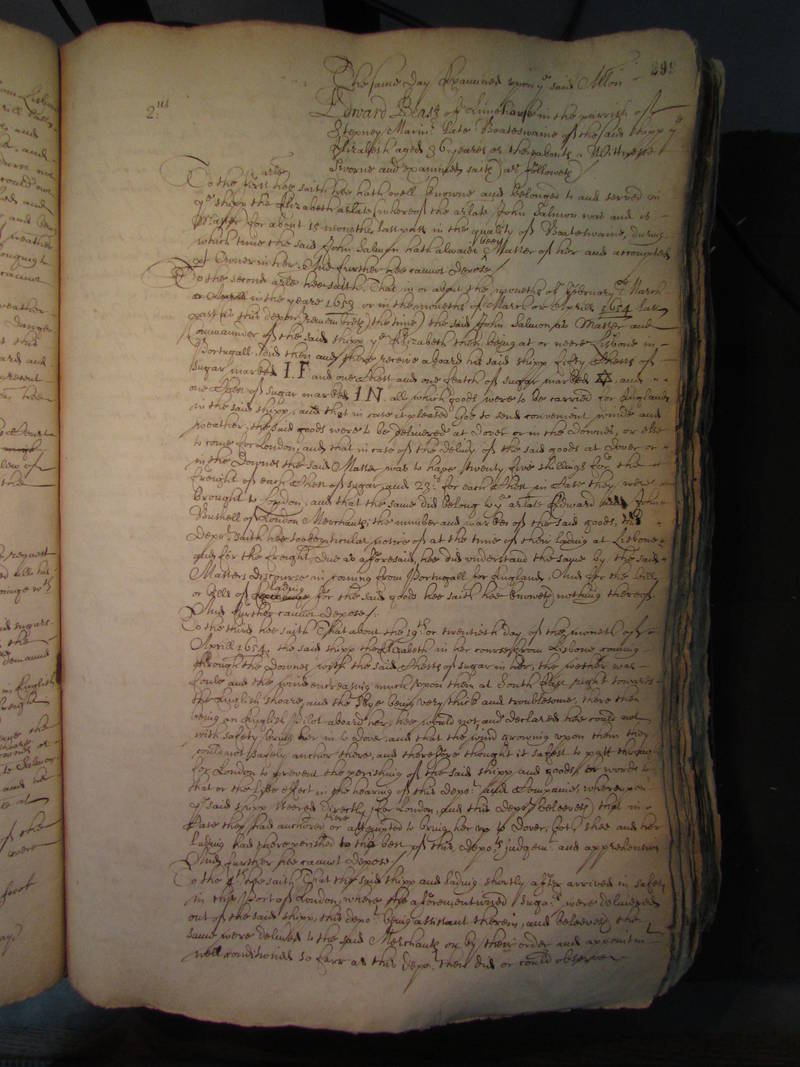 The same day Examined upon ye said Allon
2us
Edward of Limehouse in the parrish of
Stepney Marinr late Boateswaine of the said shipp ye
Elizabeth aged 36 yeares or thereabouts a Wittnesse
sworne and examined saith as followeth
To the first arle hee saith hee hath well knowne and belonged to and served in
ye shipp the Elizabeth arlate (whereof the arlate John Salmon was and is
Master) for about 15 moneths last past in the quality of Boateswaine, during
which time the said John Salmon hath alwaies beene Master of her and accompted
pt Owner in her. And further hee cannot depose
To the second arle hee saith. That in or about the moneths of February or March
in the yeare 1653 or in the moneths of March or Aprill 1654 last
past (as this depont remembreth the time) the said John Salmon as Master and
Commander of the said shipp ye Elizabeth then being at or neere Lisbone in
Portugall, did then and there receive aboard his said shipp fifty Chests of
sugar marked I F and one Chest and one feach of sugar marked ✡, and
one Chest of sugar marked I N all which goods were to be carried for England
in the said shipp, and that in case it pleased God to send convenient winde and
weather, the said goods were to be delivered at Dover or in the Downes, or else
to come for London, and that in case of the delivy of the said goods at Dover or
in the Downes the said Master was to have twenty five shillings for the
freight of each Chest of sugar, and 23s for each Chest in Case they were
brought to London, and that the same did belong to ye arlate Edward John
Bushell of London Merchants, the number and markes of the said goods, this
Depot saith hee tooke particular notice of at the time of their lading at Lisbone
and for the freight due as aforesaid, hee did understand the same by the said
Masters discourse in coming from Portugall for England, And for the bill
or bills of lading for the said goods hee saith hee knoweth nothing thereof.
And further cannot depose/.
To the third hee saith That about the 19th or twentieth day of the moneth of
Aprill 1654 the said shipp the Elizabeth in her course from Lisbone coming
through the Downes with the said Chests of sugar in her, the weather was
foule and the winde encreasing much upon them at South East right towards
the English shoare, and the skye being very thick and troublesome, there then
being an English Pilot aboard her, hee would not, and declared hee could not
with safety bring her in to Dover, and that the wind growing upon them they
could not safely anchor there, and therefore thought it safest to passe through
for London to prevent the perishing of the said shipp and goods, or words to
that or the like effect in the hearing of this depot and Companie, whereupon
ye said shipp steered directly for London, and this depot beleeveth that in
Case they had anchored there or attempted to bring her up to Dover, both shee and her
lading had there perished to the best of this depots judgemt and apprehension
And further hee cannot depose/
To the 4th hee saith That the said shipp and lading shortly after arrived in safety
in this Port of London, where the aforementioned sugars were delivered
out of the said shipp, this depot being assistant therein, and beleeveth the
same were delived to the said Merchants or by their order and appointmt
well conditioned so farr as this depot then did or could observe